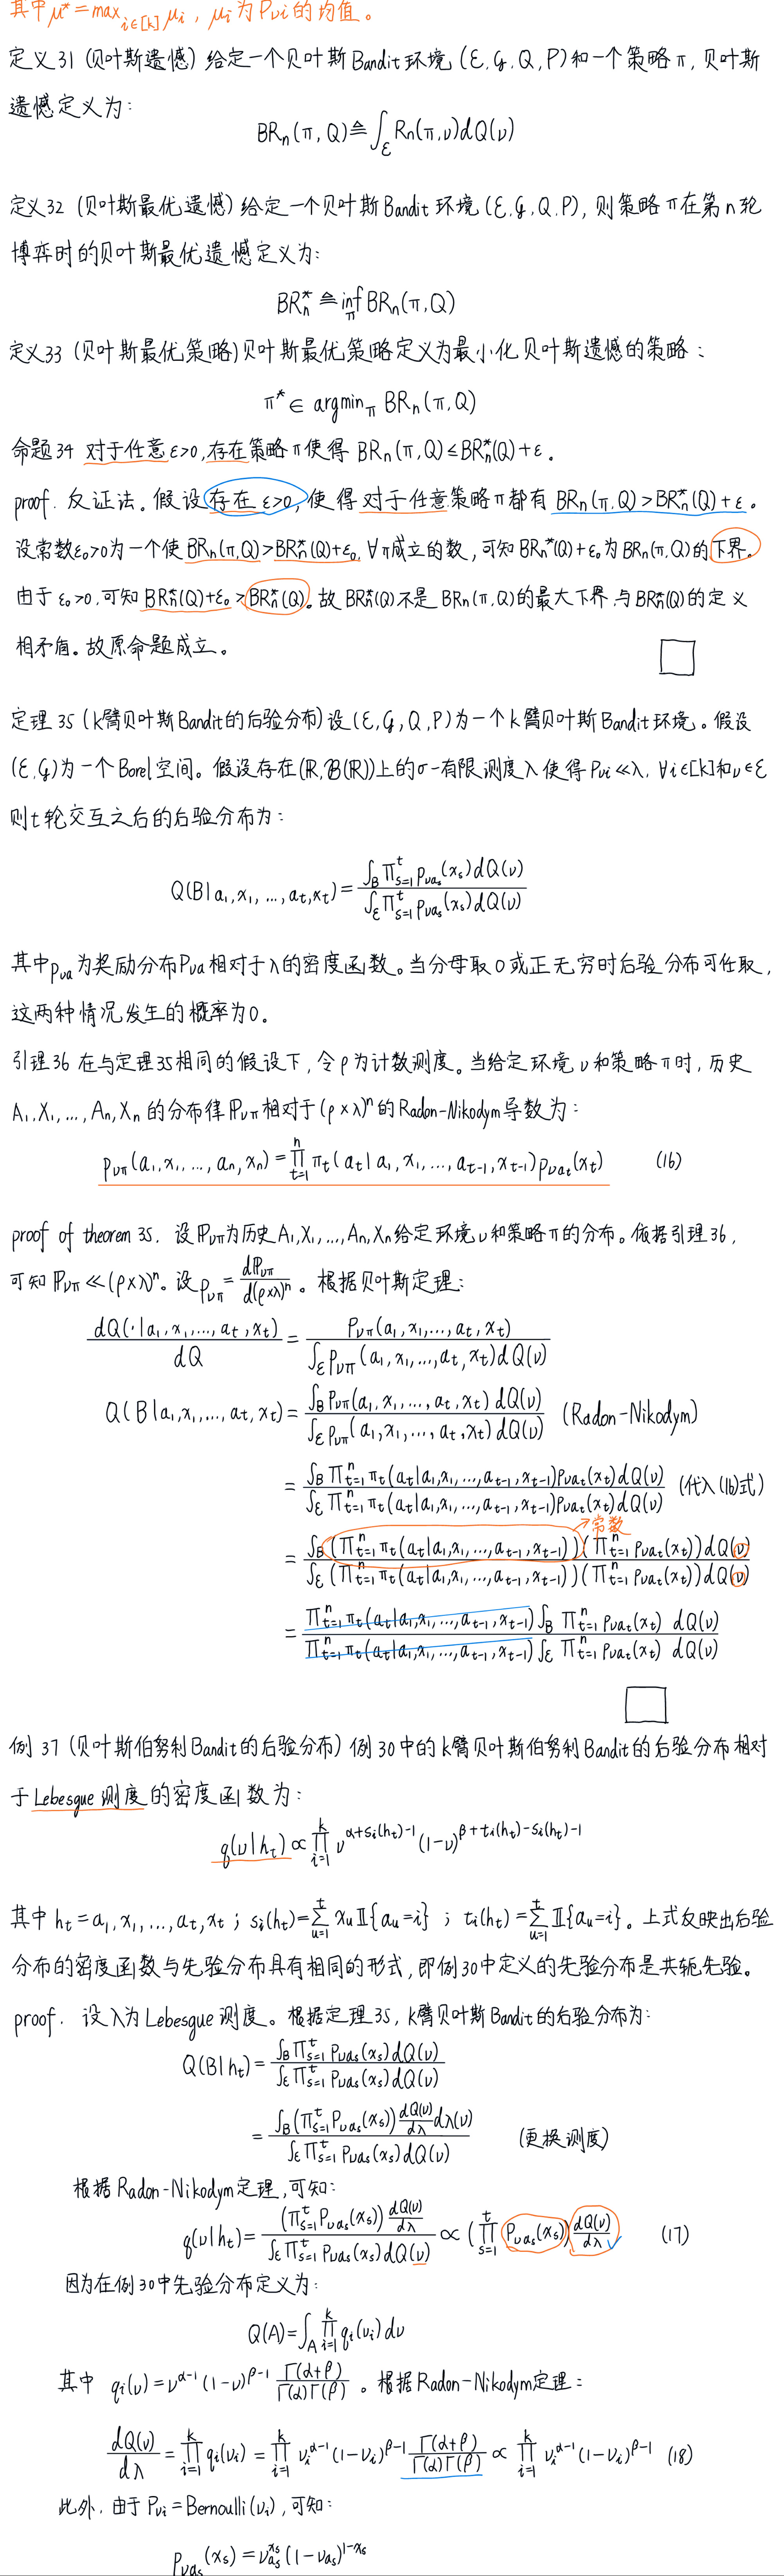 其中 μ* = max_{i∈[k]} μ_i，μ_i 为 P_{νi} 的均值。
定义31 (贝叶斯遗憾) 给定一个贝叶斯 Bandit 环境 (ℰ, 𝒢, Q, P) 和一个策略 π, 贝叶斯
遗憾定义为:
BR_n(π, Q) ≜ ∫_ℰ R_n(π, ν)dQ(ν)
定义32 (贝叶斯最优遗憾) 给定一个贝叶斯 Bandit 环境 (ℰ, 𝒢, Q, P), 则策略 π 在第 n 轮
博弈时的贝叶斯最优遗憾定义为:
BR_n^* ≜ inf_π BR_n(π, Q)
定义33 (贝叶斯最优策略) 贝叶斯最优策略定义为最小化贝叶斯遗憾的策略:
π* ∈ argmin_π BR_n(π, Q)
命题34 对于任意 ε>0, 存在策略 π 使得 BR_n(π, Q) ≤ BR_n^*(Q) + ε。
proof. 反证法。假设存在 ε>0, 使得对于任意策略 π 都有 BR_n(π, Q) > BR_n^*(Q) + ε。
设常数 ε_0>0 为一个使 BR_n(π, Q) > BR_n^*(Q) + ε_0, ∀π 成立的数, 可知 BR_n^*(Q) + ε_0 为 BR_n(π, Q) 的下界。
由于 ε_0>0, 可知 BR_n^*(Q) + ε_0 > BR_n^*(Q)。故 BR_n^*(Q) 不是 BR_n(π, Q) 的最大下界, 与 BR_n^*(Q) 的定义
相矛盾。故原命题成立。 □
定理35 (k臂贝叶斯 Bandit 的后验分布) 设 (ℰ, 𝒢, Q, P) 为一个 k 臂贝叶斯 Bandit 环境。假设
(ℰ, 𝒢) 为一个 Borel 空间。假设存在 (ℝ, 𝔅(ℝ)) 上的 σ-有限测度 λ 使得 P_{νi} ≪ λ, ∀i∈[k] 和 ν∈ℰ
则 t 轮交互之后的后验分布为:
Q(B|a_1, x_1, ..., a_t, x_t) = ∫_B ∏_{s=1}^t p_{νa_s}(x_s)dQ(ν) / ∫_ℰ ∏_{s=1}^t p_{νa_s}(x_s)dQ(ν)
其中 p_{νa} 为奖励分布 P_{νa} 相对于 λ 的密度函数。当分母取 0 或正无穷时后验分布可任取,
这两种情况发生的概率为0。
引理36 在与定理35相同的假设下, 令 ρ 为计数测度。当给定环境 ν 和策略 π 时, 历史
A_1, X_1, ..., A_n, X_n 的分布律 ℙ_{νπ} 相对于 (ρ×λ)^n 的 Radon-Nikodym 导数为:
p_{νπ}(a_1, x_1, ..., a_n, x_n) = ∏_{t=1}^n π_t(a_t|a_1, x_1, ..., a_{t-1}, x_{t-1})p_{νa_t}(x_t) (16)
proof of theorem 35. 设 ℙ_{νπ} 为历史 A_1, X_1, ..., A_n, X_n 给定环境 ν 和策略 π 的分布。依据引理36,
可知 ℙ_{νπ} ≪ (ρ×λ)^n。设 p_{νπ} = dℙ_{νπ} / d(ρ×λ)^n。根据贝叶斯定理:
dQ(·|a_1, x_1, ..., a_t, x_t) / dQ = p_{νπ}(a_1, x_1, ..., a_t, x_t) / ∫_ℰ p_{νπ}(a_1, x_1, ..., a_t, x_t)dQ(ν)
Q(B|a_1, x_1, ..., a_t, x_t) = ∫_B p_{νπ}(a_1, x_1, ..., a_t, x_t)dQ(ν) / ∫_ℰ p_{νπ}(a_1, x_1, ..., a_t, x_t)dQ(ν) (Radon-Nikodym)
= ∫_B ∏_{t=1}^n π_t(a_t|a_1, x_1, ..., a_{t-1}, x_{t-1})p_{νa_t}(x_t)dQ(ν) / ∫_ℰ ∏_{t=1}^n π_t(a_t|a_1, x_1, ..., a_{t-1}, x_{t-1})p_{νa_t}(x_t)dQ(ν) (代入(16)式)
→常数
= ∫_B (∏_{t=1}^n π_t(a_t|a_1, x_1, ..., a_{t-1}, x_{t-1}))(∏_{t=1}^n p_{νa_t}(x_t))dQ(ν) / ∫_ℰ (∏_{t=1}^n π_t(a_t|a_1, x_1, ..., a_{t-1}, x_{t-1}))(∏_{t=1}^n p_{νa_t}(x_t))dQ(ν)
= ∏_{t=1}^n π_t(a_t|a_1, x_1, ..., a_{t-1}, x_{t-1}) ∫_B ∏_{t=1}^n p_{νa_t}(x_t) dQ(ν) / ∏_{t=1}^n π_t(a_t|a_1, x_1, ..., a_{t-1}, x_{t-1}) ∫_ℰ ∏_{t=1}^n p_{νa_t}(x_t) dQ(ν)
□
例 37 (贝叶斯伯努利 Bandit 的后验分布) 例30中的 k 臂贝叶斯伯努利 Bandit 的后验分布相对
于 Lebesgue 测度的密度函数为:
q(ν|h_t) ∝ ∏_{i=1}^k ν^{α+s_i(h_t)-1}(1-ν)^{β+t_i(h_t)-s_i(h_t)-1}
其中 h_t = a_1, x_1, ..., a_t, x_t ; s_i(h_t) = ∑_{u=1}^t x_u 𝕀{a_u=i} ; t_i(h_t) = ∑_{u=1}^t 𝕀{a_u=i}。上式反映出后验
分布的密度函数与先验分布具有相同的形式, 即例30中定义的先验分布是共轭先验。
proof. 设 λ 为 Lebesgue 测度。根据定理35, k臂贝叶斯 Bandit 的后验分布为:
Q(B|h_t) = ∫_B ∏_{s=1}^t p_{νa_s}(x_s)dQ(ν) / ∫_ℰ ∏_{s=1}^t p_{νa_s}(x_s)dQ(ν)
= ∫_B (∏_{s=1}^t p_{νa_s}(x_s)) dQ(ν)/dλ dλ(ν) / ∫_ℰ ∏_{s=1}^t p_{νa_s}(x_s)dQ(ν) (更换测度)
根据 Radon-Nikodym 定理, 可知:
q(ν|h_t) = (∏_{s=1}^t p_{νa_s}(x_s)) dQ(ν)/dλ / ∫_ℰ ∏_{s=1}^t p_{νa_s}(x_s)dQ(ν) ∝ (∏_{s=1}^t p_{νa_s}(x_s)) dQ(ν)/dλ ✓ (17)
因为在例30中先验分布定义为:
Q(A) = ∫_A ∏_{i=1}^k q_i(ν_i)dν
其中 q_i(ν) = ν^{α-1}(1-ν)^{β-1} Γ(α+β) / Γ(α)Γ(β)。根据 Radon-Nikodym 定理:
dQ(ν)/dλ = ∏_{i=1}^k q_i(ν_i) = ∏_{i=1}^k ν_i^{α-1}(1-ν_i)^{β-1} Γ(α+β) / Γ(α)Γ(β) ∝ ∏_{i=1}^k ν_i^{α-1}(1-ν_i)^{β-1} (18)
此外, 由于 P_{νi} = Bernoulli(ν_i), 可知:
p_{νa_s}(x_s) = ν_{a_s}^{x_s}(1-ν_{a_s})^{1-x_s}